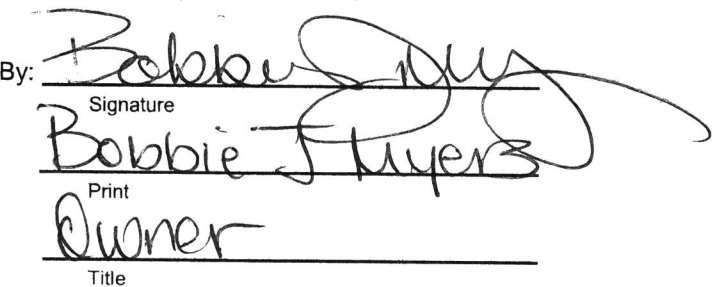 By: Bobbie J Myers
Signature
Bobbie J Myers
Print
Owner
Title